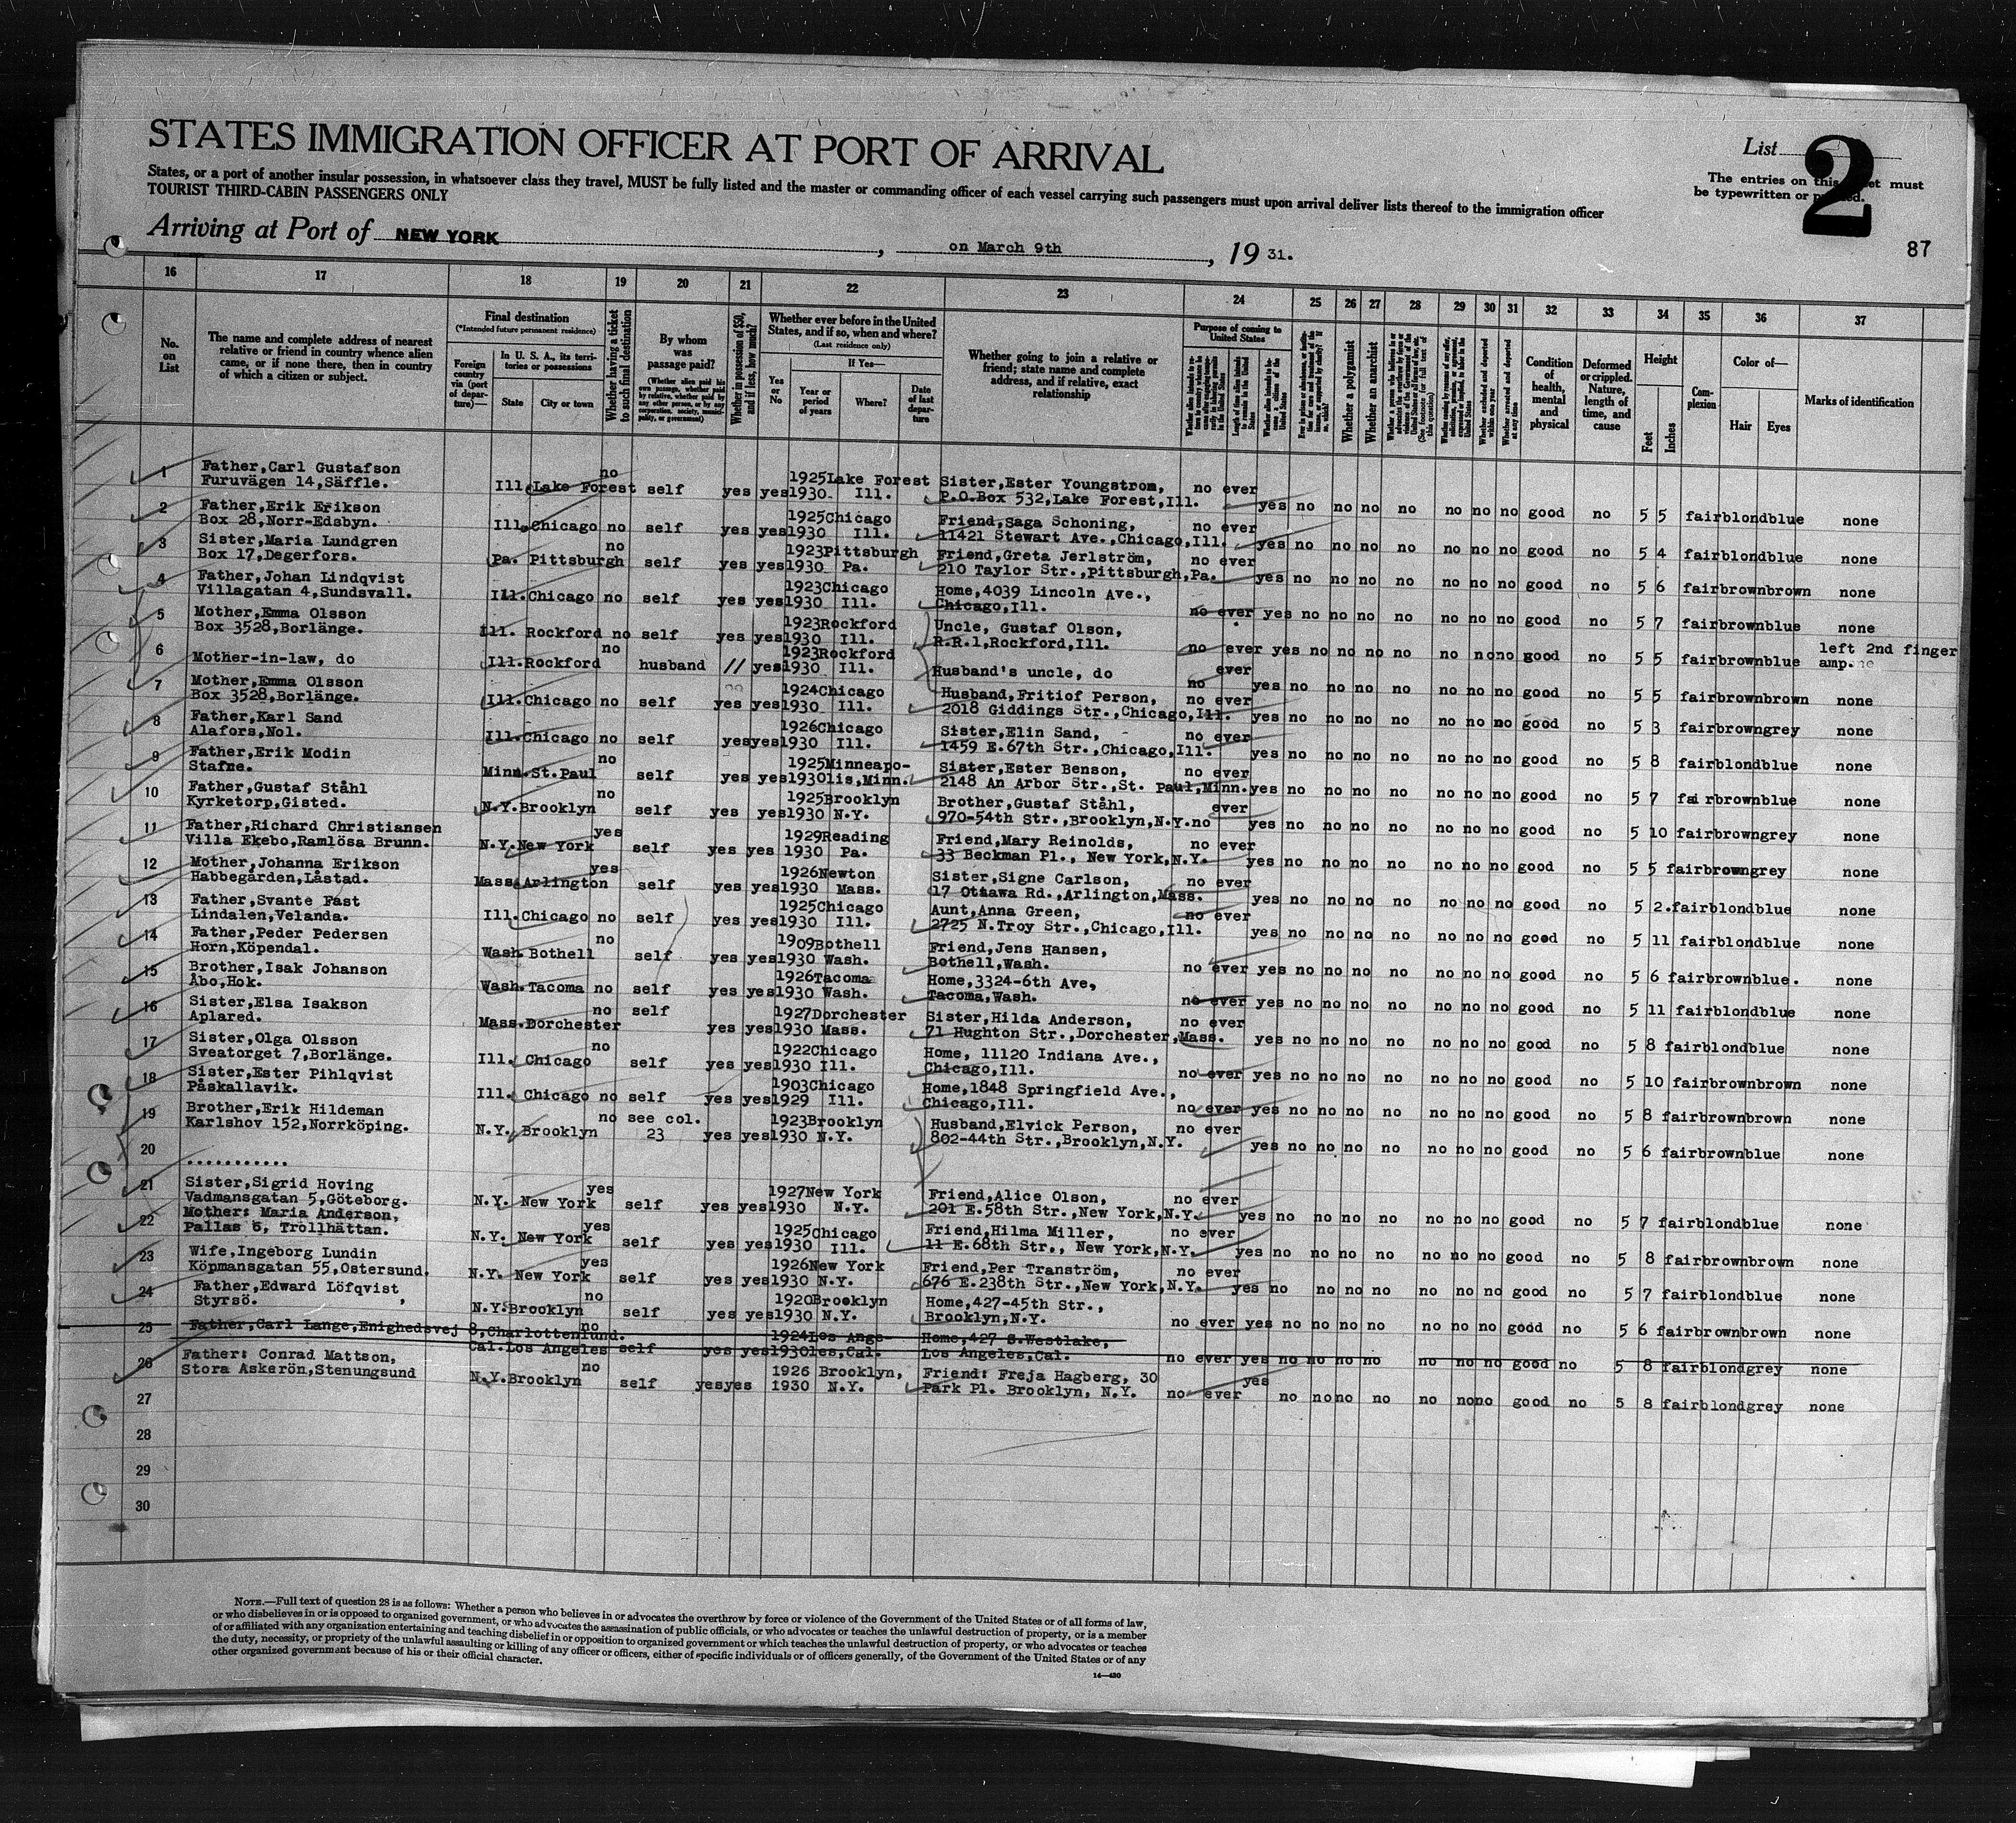 STATES IMMIGRATION OFFICER AT PORT OF ARRIVAL
List 2
States, or a port of another insular possession, in whatsoever class they travel, MUST be fully listed and the master or commanding officer of each vessel carrying such passengers must upon arrival deliver lists thereof to the immigration officer
TOURIST THIRD-CABIN PASSENGERS ONLY
The entries on this sheet must
be typewritten or printed.
Arriving at Port of NEW YORK, on March 9th, 19 31.
87
16 17 18 19 20 21 22 23 24 25 26 27 28 29 30 31 32 33 34 35 36 37
No. on List
The name and complete address of nearest relative or friend in country whence alien came, or if none there, then in country of which a citizen or subject.
Final destination
(*Intended future permanent residence)
Foreign country via (port of departure)—
In U. S. A., its territories or possessions
State
City or town
Whether having a ticket to such final destination
By whom was passage paid?
(Whether alien paid his own passage, whether paid by relative, whether paid by any other person, or by any corporation, society, municipality, or government)
Whether in possession of $50, and if less, how much?
Whether ever before in the United States, and if so, when and where?
(Last residence only)
Yes or No
If Yes—
Year or period of years
Where?
Date of last departure
Whether going to join a relative or friend; state name and complete address, and if relative, exact relationship
Purpose of coming to United States
Whether a polygamist
Whether an anarchist
Whether excluded and deported within one year
Whether arrested and deported at any time
Condition of health, mental and physical
Deformed or crippled. Nature, length of time, and cause
Height
Feet
Inches
Complexion
Color of—
Hair
Eyes
Marks of identification
1 Father,Carl Gustafson no 1925 Lake Forest Sister,Ester Youngstrom, no ever
Furuvägen 14,Säffle. Ill. Lake Forest self yes yes 1930 Ill. P.O.Box 532,Lake Forest,Ill. yes no no no no no no no good no 5 5 fair blond blue none
2 Father,Erik Erikson 1925 Chicago Friend,Saga Schoning, no ever
Box 28,Norr-Edsbyn. Ill. Chicago no self yes yes 1930 Ill. 11421 Stewart Ave.,Chicago,Ill. yes no no no no no no no good no 5 4 fair blond blue none
3 Sister,Maria Lundgren no 1923 Pittsburgh Friend,Greta Jerlström, no ever
Box 17,Degerfors. Pa. Pittsburgh self yes yes 1930 Pa. 210 Taylor Str.,Pittsburgh,Pa. yes no no no no no no no good no 5 6 fair brown brown none
4 Father,Johan Lindqvist 1923 Chicago Home,4039 Lincoln Ave.,
Villagatan 4,Sundsvall. Ill. Chicago no self yes yes 1930 Ill. Chicago,Ill. no ever yes no no no no no no no good no 5 7 fair brown blue none
5 Mother,Emma Olsson 1923 Rockford Uncle, Gustaf Olson,
Box 3528,Borlänge. Ill. Rockford no self yes yes 1930 Ill. R.R.1,Rockford,Ill. no ever yes no no no no no no no good no 5 5 fair brown blue left 2nd finger amp.
6 no 1923 Rockford ever
Mother-in-law, do Ill. Rockford husband // yes 1930 Ill. Husband's uncle, do no yes no no no no no no no good no 5 5 fair brown brown none
7 Mother,Emma Olsson 1924 Chicago Husband,Fritiof Person, no ever
Box 3528,Borlänge. Ill. Chicago no self yes yes 1930 Ill. 2018 Giddings Str.,Chicago,Ill. yes no no no no no no no good no 5 3 fair brown grey none
8 Father,Karl Sand 1926 Chicago Sister,Elin Sand, no ever
Alafors,Nol. Ill. Chicago no self yes yes 1930 Ill. 1459 E.67th Str.,Chicago,Ill. yes no no no no no no no good no 5 8 fair blond blue none
9 Father,Erik Modin no 1925 Minneapo- Sister,Ester Benson, no ever
Stafne. Minn. St.Paul self yes yes 1930 lis,Minn. 2148 An Arbor Str.,St. Paul,Minn. yes no no no no no no no good no 5 7 fair brown blue none
10 Father,Gustaf Ståhl no 1925 Brooklyn Brother,Gustaf Ståhl, ever
Kyrketorp,Gisted. N.Y. Brooklyn self yes yes 1930 N.Y. 970-54th Str.,Brooklyn,N.Y. no yes no no no no no no no good no 5 10 fair brown grey none
11 Father,Richard Christiansen yes 1929 Reading Friend,Mary Reinolds, no ever
Villa Ekebo,Ramlösa Brunn. N.Y. New York self yes yes 1930 Pa. 33 Beckman Pl., New York,N.Y. yes no no no no no no no good no 5 5 fair brown grey none
12 Mother,Johanna Erikson yes 1926 Newton Sister,Signe Carlson, no ever
Habbegården,Låstad. Mass. Arlington self yes yes 1930 Mass. 17 Ottawa Rd.,Arlington,Mass. yes no no no no no no no good no 5 2. fair blond blue none
13 Father,Svante Fast 1925 Chicago Aunt,Anna Green, no ever
Lindalen,Velanda. Ill. Chicago no self yes yes 1930 Ill. 2725 N.Troy Str.,Chicago,Ill. yes no no no no no no no good no 5 11 fair blond blue none
14 Father,Peder Pedersen no 1909 Bothell Friend,Jens Hansen,
Horn,Köpendal. Wash. Bothell self yes yes 1930 Wash. Bothell,Wash. no ever yes no no no no no no no good no 5 6 fair brown blue. none
15 Brother,Isak Johanson 1926 Tacoma Home,3324-6th Ave,
Åbo,Hok. Wash. Tacoma no self yes yes 1930 Wash. Tacoma,Wash. no ever yes no no no no no no no good no 5 11 fair blond blue none
16 Sister,Elsa Isakson no self 1927 Dorchester Sister,Hilda Anderson, no ever
Aplared. Mass. Dorchester yes yes 1930 Mass. 71 Hughton Str.,Dorchester,Mass. yes no no no no no no no good no 5 8 fair blond blue none
17 Sister,Olga Olsson no 1922 Chicago Home, 11120 Indiana Ave.,
Sveatorget 7,Borlänge. Ill. Chicago self yes yes 1930 Ill. Chicago,Ill. no ever yes no no no no no no no good no 5 10 fair brown brown none
18 Sister,Ester Pihlqvist 1903 Chicago Home,1848 Springfield Ave.,
Påskallavik. Ill. Chicago no self yes yes 1929 Ill. Chicago,Ill. no ever yes no no no no no no no good no 5 8 fair brown brown none
19 Brother,Erik Hildeman no see col. 1923 Brooklyn Husband,Elvick Person, no ever
Karlshov 152,Norrköping. N.Y. Brooklyn 23 yes yes 1930 N.Y. 802-44th Str.,Brooklyn,N.Y. yes no no no no no no no good no 5 6 fair brown blue none
20 ...........
21 Sister,Sigrid Hoving yes 1927 New York Friend,Alice Olson, no ever
Vadmansgatan 5,Göteborg. N.Y. New York self yes yes 1930 N.Y. 201 E.58th Str.,New York,N.Y. yes no no no no no no no good no 5 7 fair blond blue none
22 Mother: Maria Anderson, yes 1925 Chicago Friend,Hilma Miller, no ever
Pallas 6, Trollhättan. N.Y. New York self yes yes 1930 Ill. 11 E.68th Str., New York,N.Y. yes no no no no no no no good no 5 8 fair brown brown none
23 Wife,Ingeborg Lundin yes 1926 New York Friend,Per Tranström, no ever
Köpmansgatan 55,Ostersund. N.Y. New York self yes yes 1930 N.Y. 676 E.238th Str.,New York,N.Y. yes no no no no no no no good no 5 7 fair blond blue none
24 Father,Edward Löfqvist no 1920 Brooklyn Home,427-45th Str.,
Styrsö. N.Y. Brooklyn self yes yes 1930 N.Y. Brooklyn,N.Y. no ever yes no no no no no no no good no 5 6 fair brown brown none
25 Father,Carl Lange,Enighedsvej 8,Charlottenlund. no 1924 Los Ange- Home,427 S.Westlake,
Cal. Los Angeles self yes yes 1930 les,Cal. Los Angeles,Cal. no ever yes no no no no no no no good no 5 8 fair blond grey none
26 Father: Conrad Mattson, no 1926 Brooklyn, Friend: Freja Hagberg, 30 yes
Stora Askerön,Stenungsund N.Y. Brooklyn self yes yes 1930 N.Y. Park Pl. Brooklyn, N.Y. no ever no no no no no no no good no 5 8 fair blond grey none
27
28
29
30
NOTE.—Full text of question 28 is as follows: Whether a person who believes in or advocates the overthrow by force or violence of the Government of the United States or of all forms of law,
or who disbelieves in or is opposed to organized government, or who advocates the assassination of public officials, or who advocates or teaches the unlawful destruction of property, or is a member
of or affiliated with any organization entertaining and teaching disbelief in or opposition to organized government or which teaches the unlawful destruction of property, or who advocates or teaches
the duty, necessity, or propriety of the unlawful assaulting or killing of any officer or officers, either of specific individuals or of officers generally, of the Government of the United States or of any
other organized government because of his or their official character.
14—430